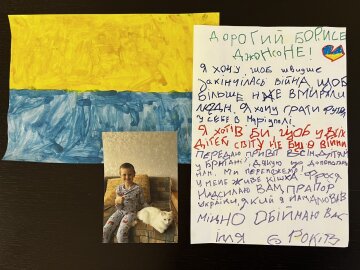 ДОРОГИЙ БОРИСЕ
ДЖОНСОНЕ!
Я ХОЧУ ЩОБ ШВИДШЕ
ЗАКІНЧІЛАСЬ ВІЙНА ЩОБ
БІЛЬШЕ НЕ ВМИРАЛИ
ЛЮДИ. Я ХОЧУ ГРАТИ
У СЕБЕ В МАРІУПОЛІ
Я ХОТІВ БИ, ЩОБ У ВСІХ
ДІТЕЙ СВІТУ НЕ БУЛО ВІЙНИ
ПЕРЕДАЮ ПРИВІТ ВСІМ ДІТЯМ
У БРИТАНІЇ. ДЯКУЮ ЩО ДОПОМОГАЄ
НАМ. МИ ПЕРЕМОЖЕМО!
У МЕНЕ ЖИВЕ КІШКА ФРОСЯ
НАДСИЛАЮ ВАМ ПРАПОР
УКРАЇНИ, ЯКИЙ Я НАМАЛЮВАВ
МІЦНО ОБІЙМАЮ ВАС
ІЛЛЯ 6 РОКІВ